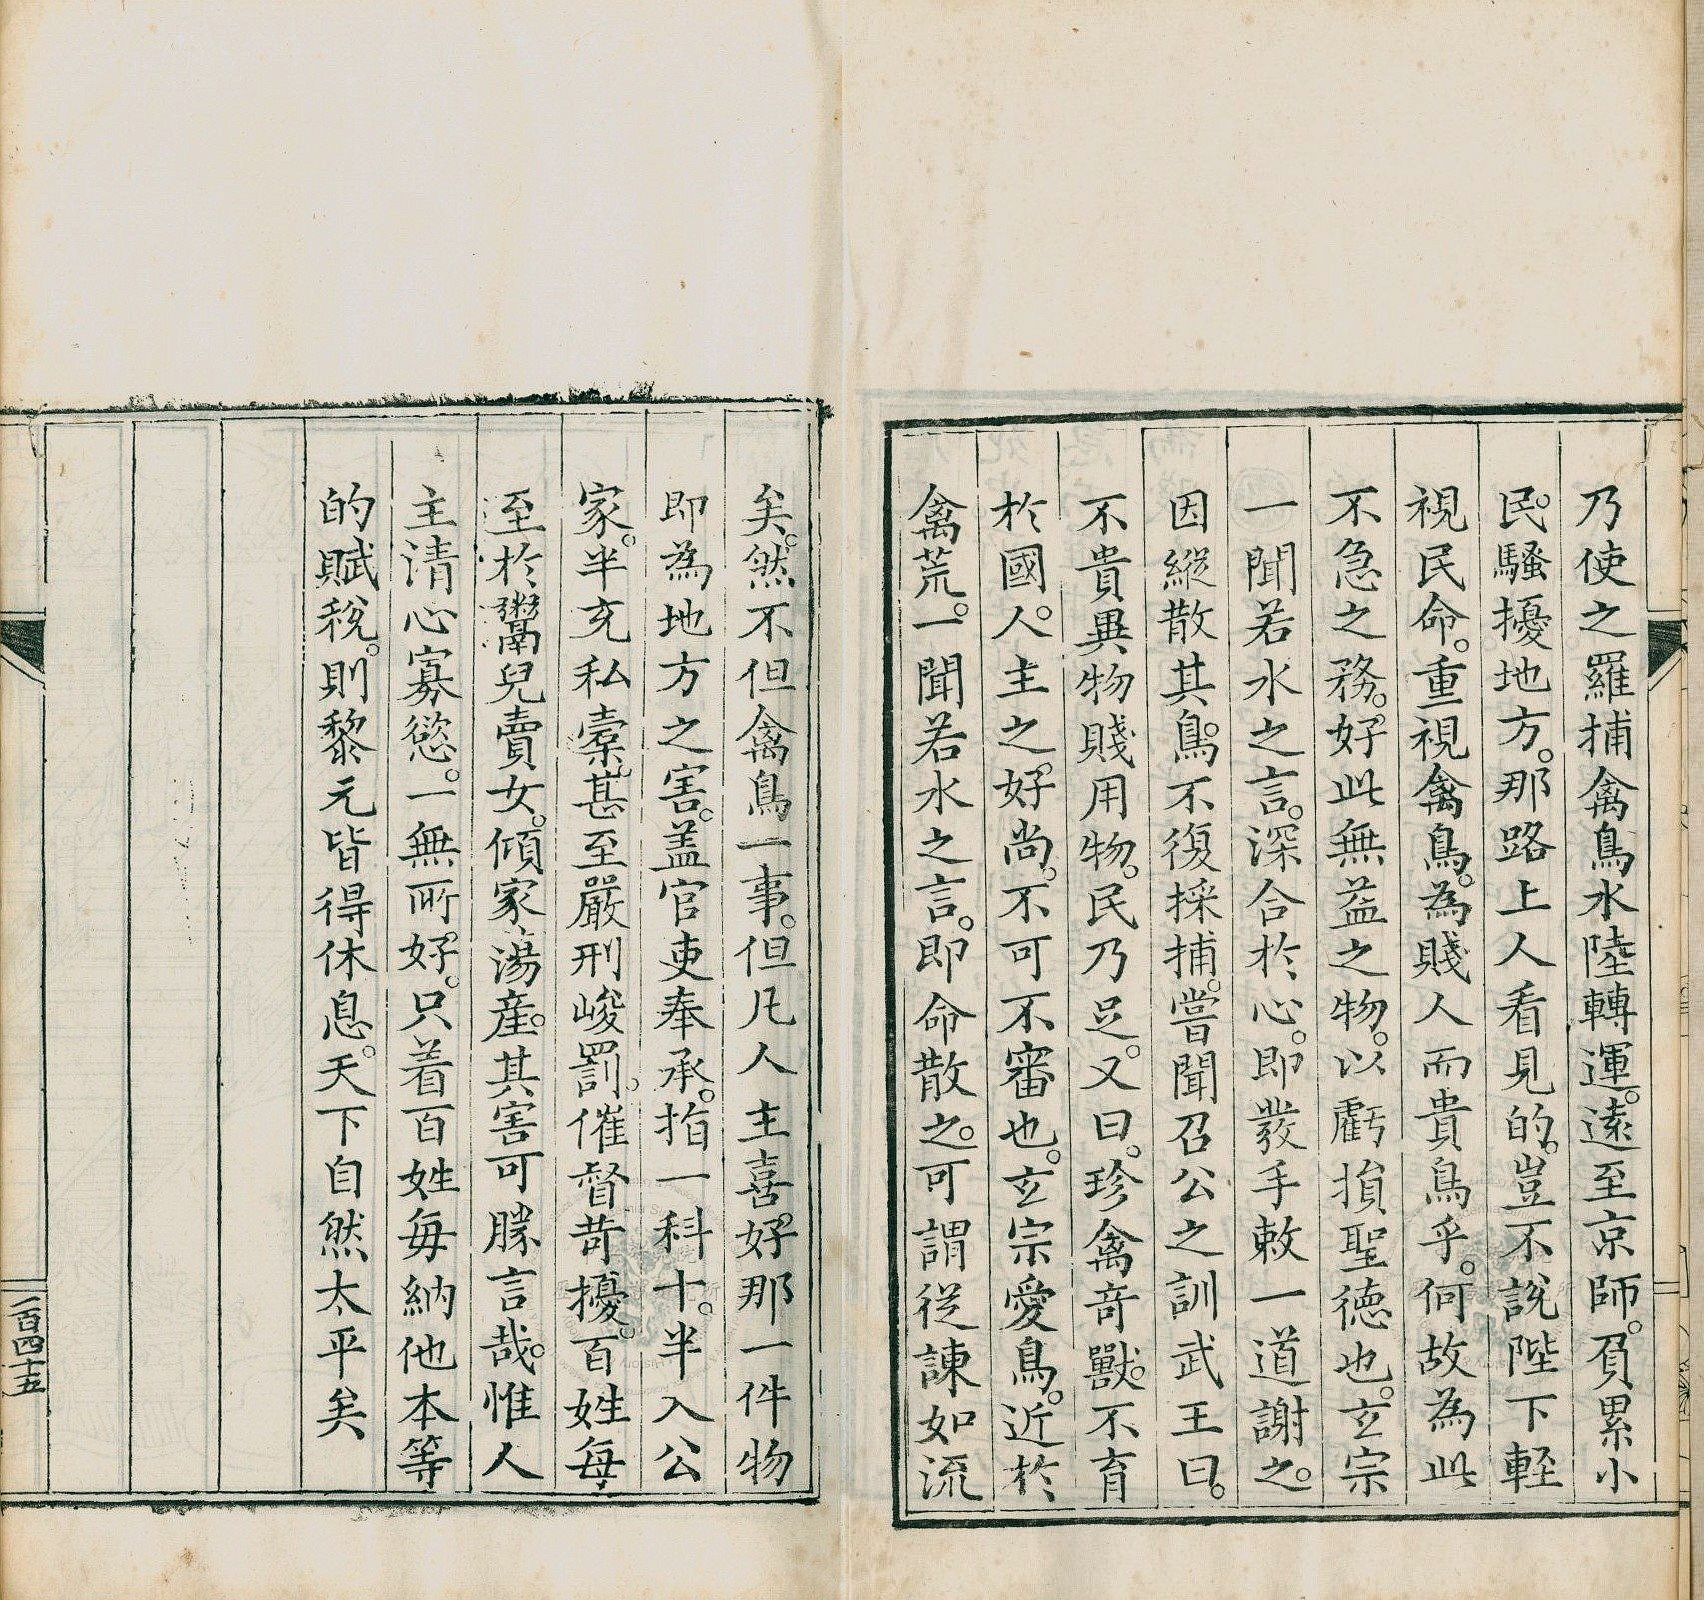 乃使之羅捕禽鳥水陸轉運。遠至京師。負累小
民。騷擾地方。那路上人看見的。豈不說陛下輕
視民命。重視禽鳥。為賤人而貴鳥乎。何故為此
不急之務。好此無益之物。以虧損聖德也。玄宗
一聞若水之言。深合於心。即發手敕一道謝之。
因縱散其鳥。不復採捕。嘗聞召公之訓武王曰。
不貴異物賤用物。民乃足。又曰。珍禽奇獸。不育
於國。人主之好尚。不可不審也。玄宗愛鳥。近於
禽荒。一聞若水之言。即命散之。可謂從諫如流
矣。然不但禽鳥一事。但凡人主喜好那一件物
即為地方之害。蓋官吏奉承。指一科十。半入公
家。半充私橐。甚至嚴刑峻罰。催督苛擾。百姓每
至於鬻兒賣女。傾家蕩產。其害可勝言哉。惟人
主清心寡慾。一無所好。只着百姓每納他本等
的賦稅。則黎元皆得休息。天下自然太平矣
一百四十五